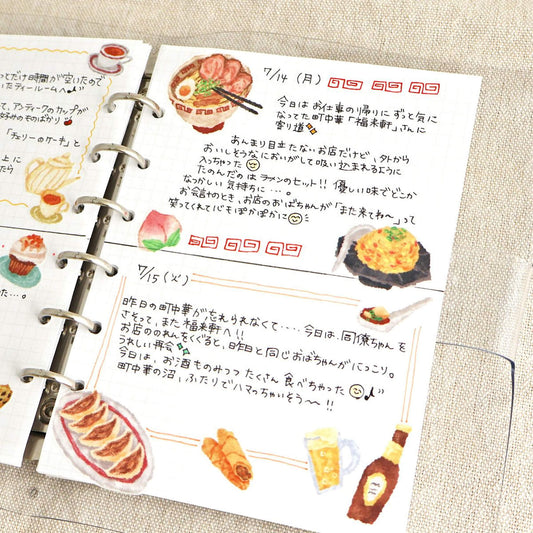 ってだけ時間が空いたので
いたティールームへ♪
て、アンティークのカップが
好みのそのばかり
「チェリーのケーキ」と
上に
たら
た…。
7/14（月）
今日はお仕事の帰りにずっと気に
なってた町中華「福来軒」さんに
寄り道
あんまり目立たないお店だけど、外から
おいしそうなにおいがして吸い込まれるように
入っちゃった
たのんだのはラーメンのセット!! 優しい味でどこか
なつかしい気持ちに…。
お会計のとき、お店のおばちゃんが「また来てね〜」って
笑ってくれて心もぽかぽかに
7/15（火）
昨日の町中華が忘れられなくて…。今日は、同僚ちゃんを
さそって、また福来軒へ!!
お店ののれんをくぐると、昨日と同じおばちゃんがにっこり。
うれしい再会
今日は、お酒ものみつつたくさん食べちゃった♪
町中華の沼、ふたりでハマっちゃいそう〜!!